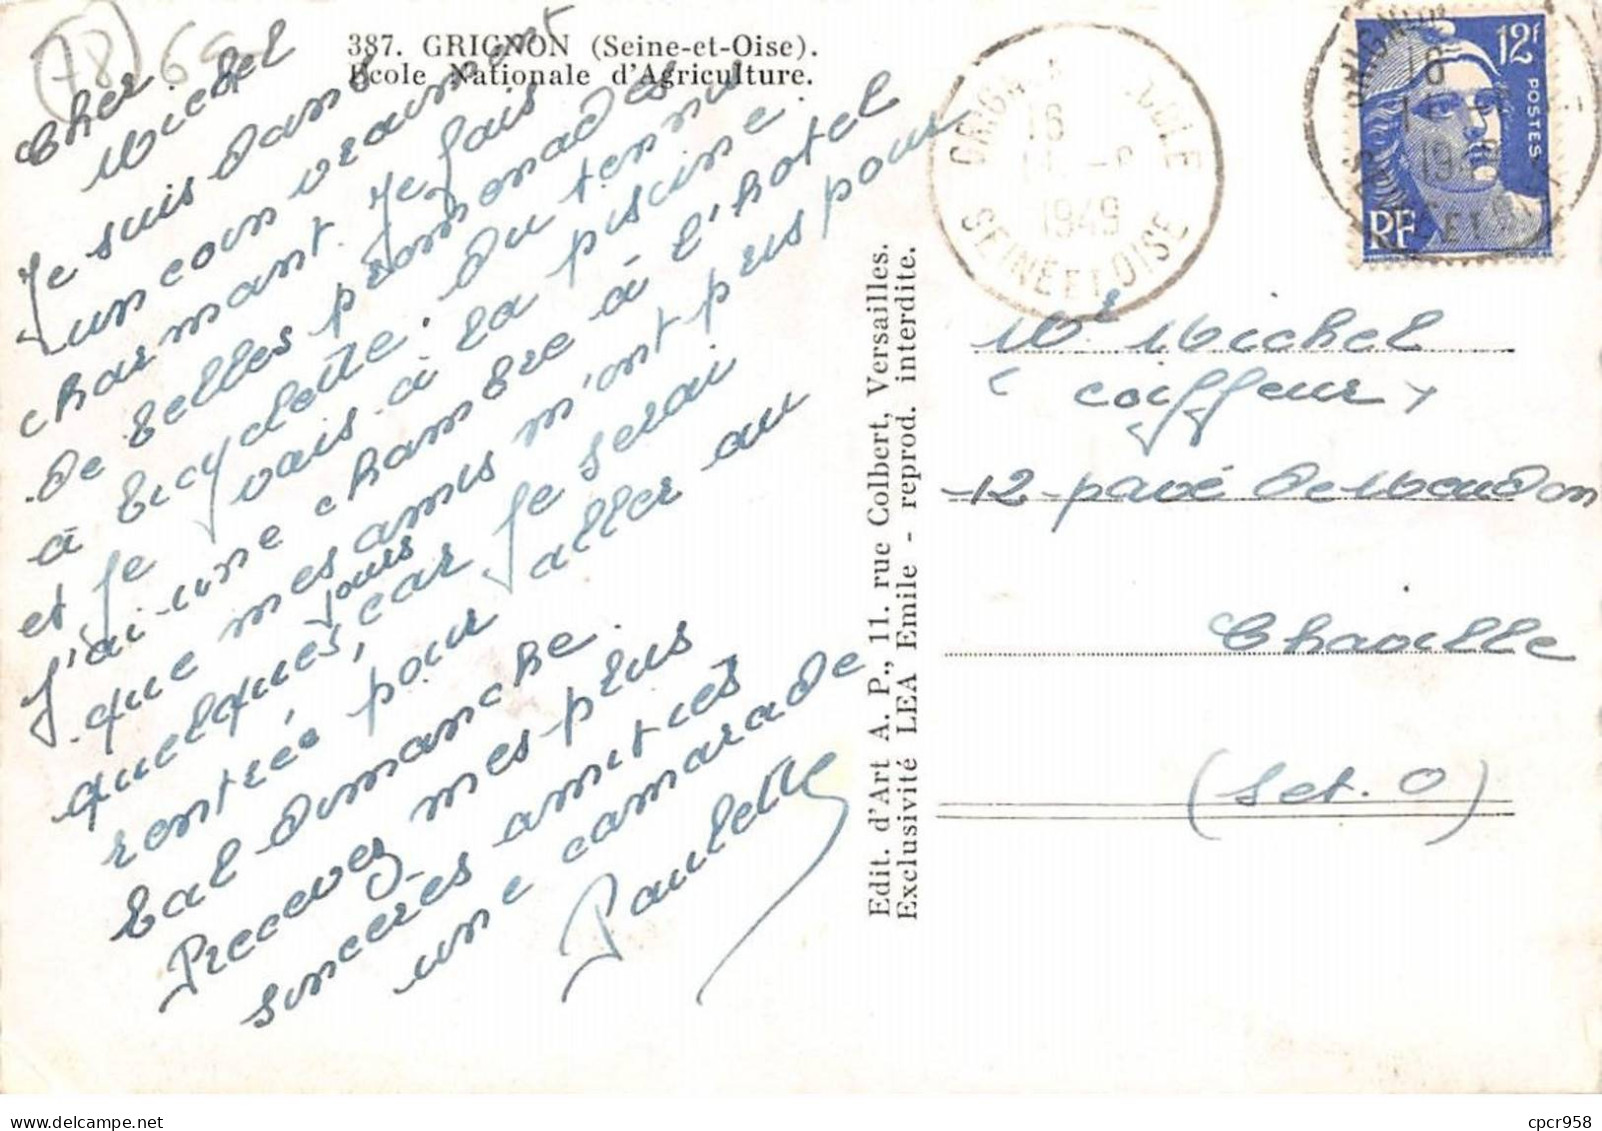 (78) 69
387. GRIGNON (Seine-et-Oise).
Ecole Nationale d'Agriculture.
Cher
Michel
Je suis dans
un coin vraiment
charmant. Je fais
de belles promenades
à bicyclette. Du tennis
et je vais à la piscine.
J'ai une chambre à l'hotel
que mes amis m'ont pris pour
quelques jours, car je serai
rentrée pour aller au
bal dimanche.
Recevez mes plus
sincères amitiés
une camarade
Paulette
Edit. d'Art A. P., 11. rue Colbert, Versailles.
Exclusivité LEA Emile - reprod. interdite.
16
1949
SEINE ET OISE
12F
POSTES
RF
16
Mr Michel
( coiffeur )
12 pavé de Meudon
Chaville
(S et. O)
cpcr958